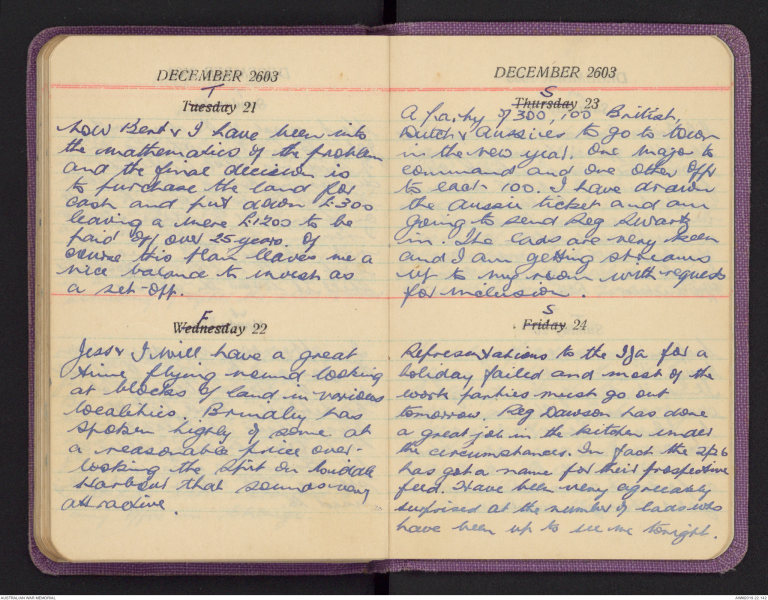 DECEMBER 2603
T
Tuesday 21
Now Bent & I have been into
the mathematics of the problem
and the final decision is
to purchase the land for
cash and put down £300
leaving a mere £1200 to be
paid off over 25 years. Of
course this plan leaves me a
nice balance to invest as
a set-off.
F
Wednesday 22
Jess & I will have a great
time flying round looking
at blocks of land in various
localities. Brindley has
spoken highly of some at
a reasonable price over-
looking the Spit in Middle
Harbour that sounds very
attractive.
DECEMBER 2603
S
Thursday 23
A party of 300, 100 British,
Dutch & Aussies to go to town
in the new year. One major to
command and one other Offr
to each 100. I have drawn
the Aussie ticket and am
going to send Reg Swartz
in. The lads are very keen
and I am getting streams
up to my room with requests
for inclusion.
S
Friday 24
Representations to the IJA for a
holiday failed and most of the
work parties must go out
tomorrow. Reg Dawson has done
a great job in the kitchen under
the circumstances. In fact the 2/26
has got a name for their prospective
feed. Have been very agreeably
surprised at the number of lads who
have been up to see me tonight.
AUSTRALIAN WAR MEMORIAL